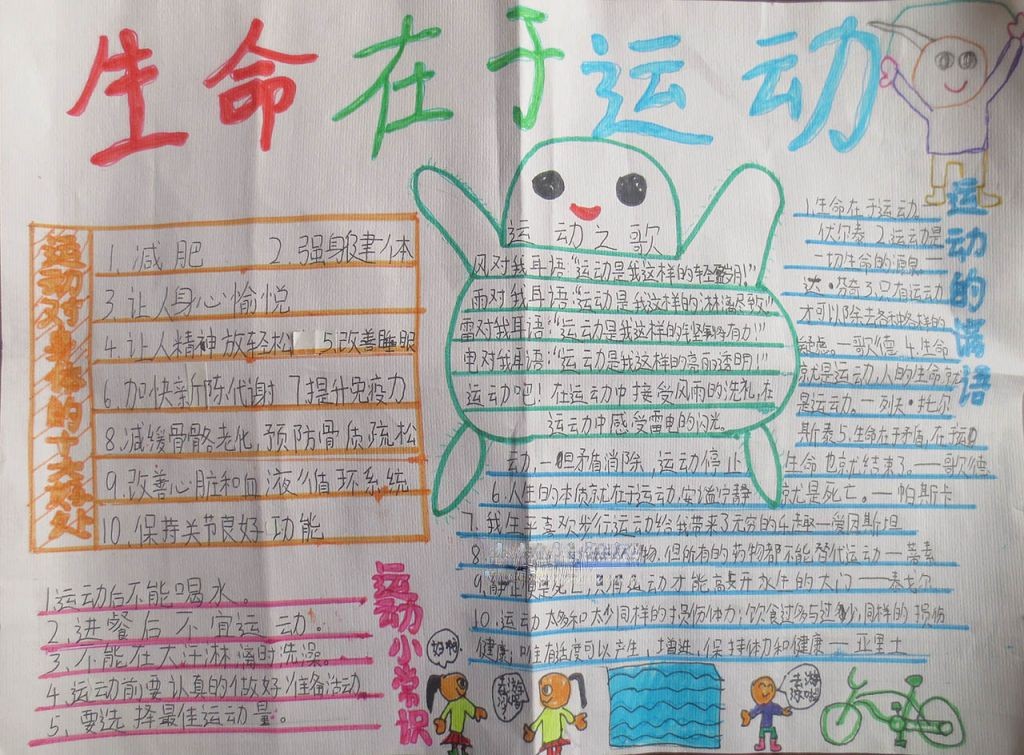 生命在于运动
运动对身体的十大好处
1. 减肥 2. 强身健体
3. 让人身心愉悦
4. 让人精神放轻松 5. 改善睡眠
6. 加快新陈代谢 7 提升免疫力
8. 减缓骨骼老化, 预防骨质疏松
9. 改善心脏和血液循环系统
10. 保持关节良好功能
运动之歌
风对我耳语:“运动是我这样的轻盈!”
雨对我耳语:“运动是我这样的淋漓尽致”
雷对我耳语:“运动是我这样的铿锵有力!”
电对我耳语:“运动是我这样的亮丽透明!”
运动吧! 在运动中接受风雨的洗礼, 在
运动中感受雷电的闪光。
运动的谚语
1. 生命在于运动。
伏尔泰 2. 运动是
一切生命的源泉—
达·芬奇 3. 只有运动
才可以除去各种各样的
疑虑。—歌德 4. 生命
就是运动, 人的生命就
是运动。—列夫·托尔
斯泰 5. 生命在于矛盾, 在于运
动, 一旦矛盾消除, 运动停止 生命也就结束了。——歌德
6. 人生的本质就在于运动, 安谧宁静 就是死亡。—帕斯卡
7. 我生平喜欢步行运动给我带来了无穷的乐趣—爱因斯坦
8. 物, 但所有的药物都不能替代运动—蒂素
9. 静止便是死亡, 只有运动才能敲开永生的大门——泰戈尔
10. 运动太多和太少同样的损伤体力; 饮食过多与过少, 同样的损伤
健康; 唯有适度可以产生, 增进, 保持体力和健康——亚里士
运动小常识
1. 运动后不能喝水。
2. 进餐后不宜运动。
3. 不能在大汗淋漓时洗澡。
4. 运动前要认真的做好准备活动
5. 要选择最佳运动量。
好啊!
去游泳
去游泳啦